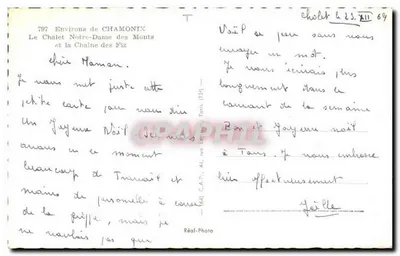 797 Environs de CHAMONIX
Le Chalet Notre-Dame des Monts
et la Chaîne des Fiz
Chère Maman.
Je vous met juste cette
petite carte pour vous dire
Un Joyeux Noël. Nous
avons en ce moment
beaucoup de Travail et
moins de personnel à cause
de la grippe, mais je
ne voulais pas que
Cholet le 23 XII 69
Noël se passe sans vous
envoyer un mot.
Je vous écrirais plus
longuement dans le
courant de la semaine
Bon et Joyeux noël
à Tous. Je vous embrasse
bien affectueusement
Joëlle
Réal-Photo